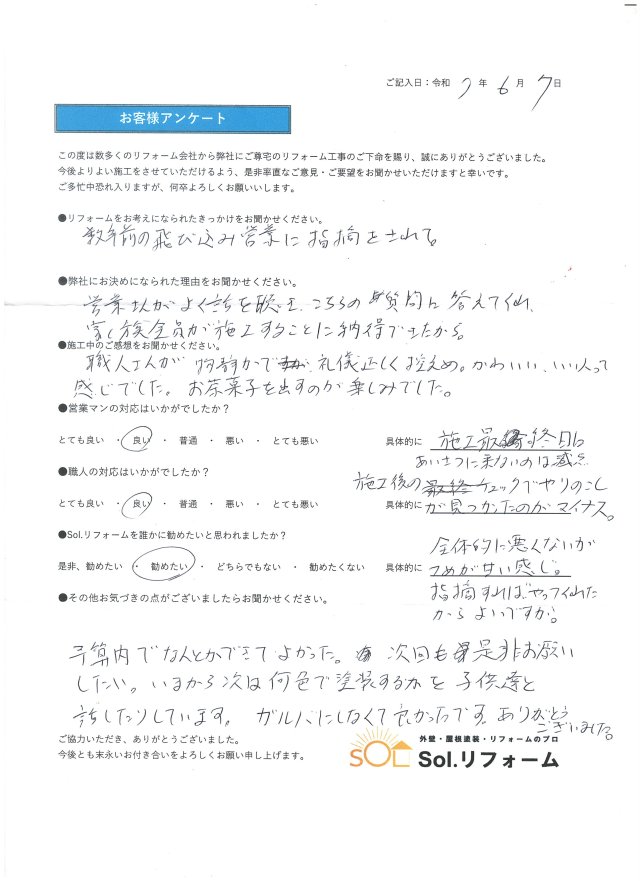 ご記入日：令和 7 年 6 月 7 日
お客様アンケート
この度は数多くのリフォーム会社から弊社にご尊宅のリフォーム工事のご下命を賜り、誠にありがとうございました。
今後よりよい施工をさせていただけるよう、是非率直なご意見・ご要望をお聞かせいただけますと幸いです。
ご多忙中恐れ入りますが、何卒よろしくお願いいします。
●リフォームをお考えになられたきっかけをお聞かせください。
数年前の飛び込み営業に指摘をされて。
●弊社にお決めになられた理由をお聞かせください。
営業さんがよく話を聴き、こちらの質問に答えてくれ、
家族全員が施工することに納得できたから。
●施工中のご感想をお聞かせください。
職人さんが物静かで礼儀正しく控えめ。かわいい、いい人って
感じでした。お茶菓子を出すのが楽しみでした。
●営業マンの対応はいかがでしたか？
とても良い ・ 良い ・ 普通 ・ 悪い ・ とても悪い 具体的に 施工最終日に
あいさつに来ないのは減点
●職人の対応はいかがでしたか？
施工後のチェックでやりのこし
とても良い ・ 良い ・ 普通 ・ 悪い ・ とても悪い 具体的に が見つかったのがマイナス。
●Sol.リフォームを誰かに勧めたいと思われましたか？
全体的に悪くないが
是非、勧めたい ・ 勧めたい ・ どちらでもない ・ 勧めたくない 具体的に つめが甘い感じ。
指摘すればやってくれた
からよいですが。
●その他お気づきの点がございましたらお聞かせください。
予算内でなんとかできてよかった。次回も是非お願い
したい。いまから次は何色で塗装するかを子供達と
話したりしています。ガルバにしなくて良かったです。ありがとう
ございました。
ご協力いただき、ありがとうございました。
今後とも末永いお付き合いをよろしくお願い申し上げます。
外壁・屋根塗装・リフォームのプロ
SOL Sol.リフォーム